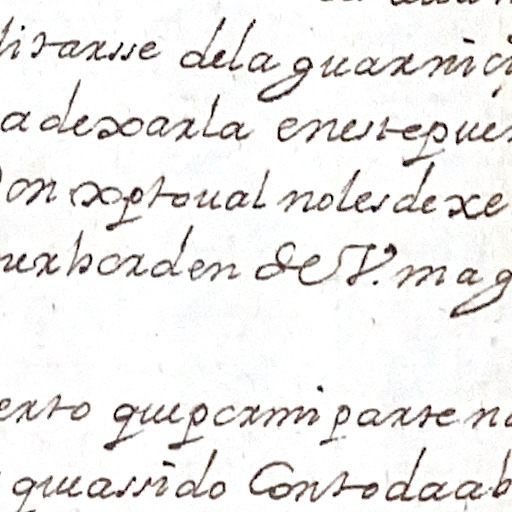 litarsse dela guarniçi
a dexarla enestepuer
Don xptoual noles dexe
uer horden de V. mag
erto que por mi parte no
que assido Con toda ab